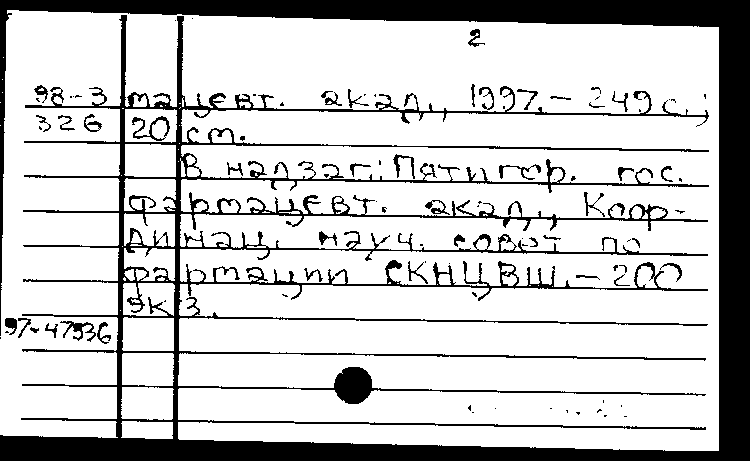 2
98-3 мацевт. акад., 1997. – 249 с.;
326 20 см.
В надзаг.: Пятигор. гос.
фармацевт. акад., Коор-
динац. науч. совет по
фармации СКНЦВШ. – 200
экз.
97-47936